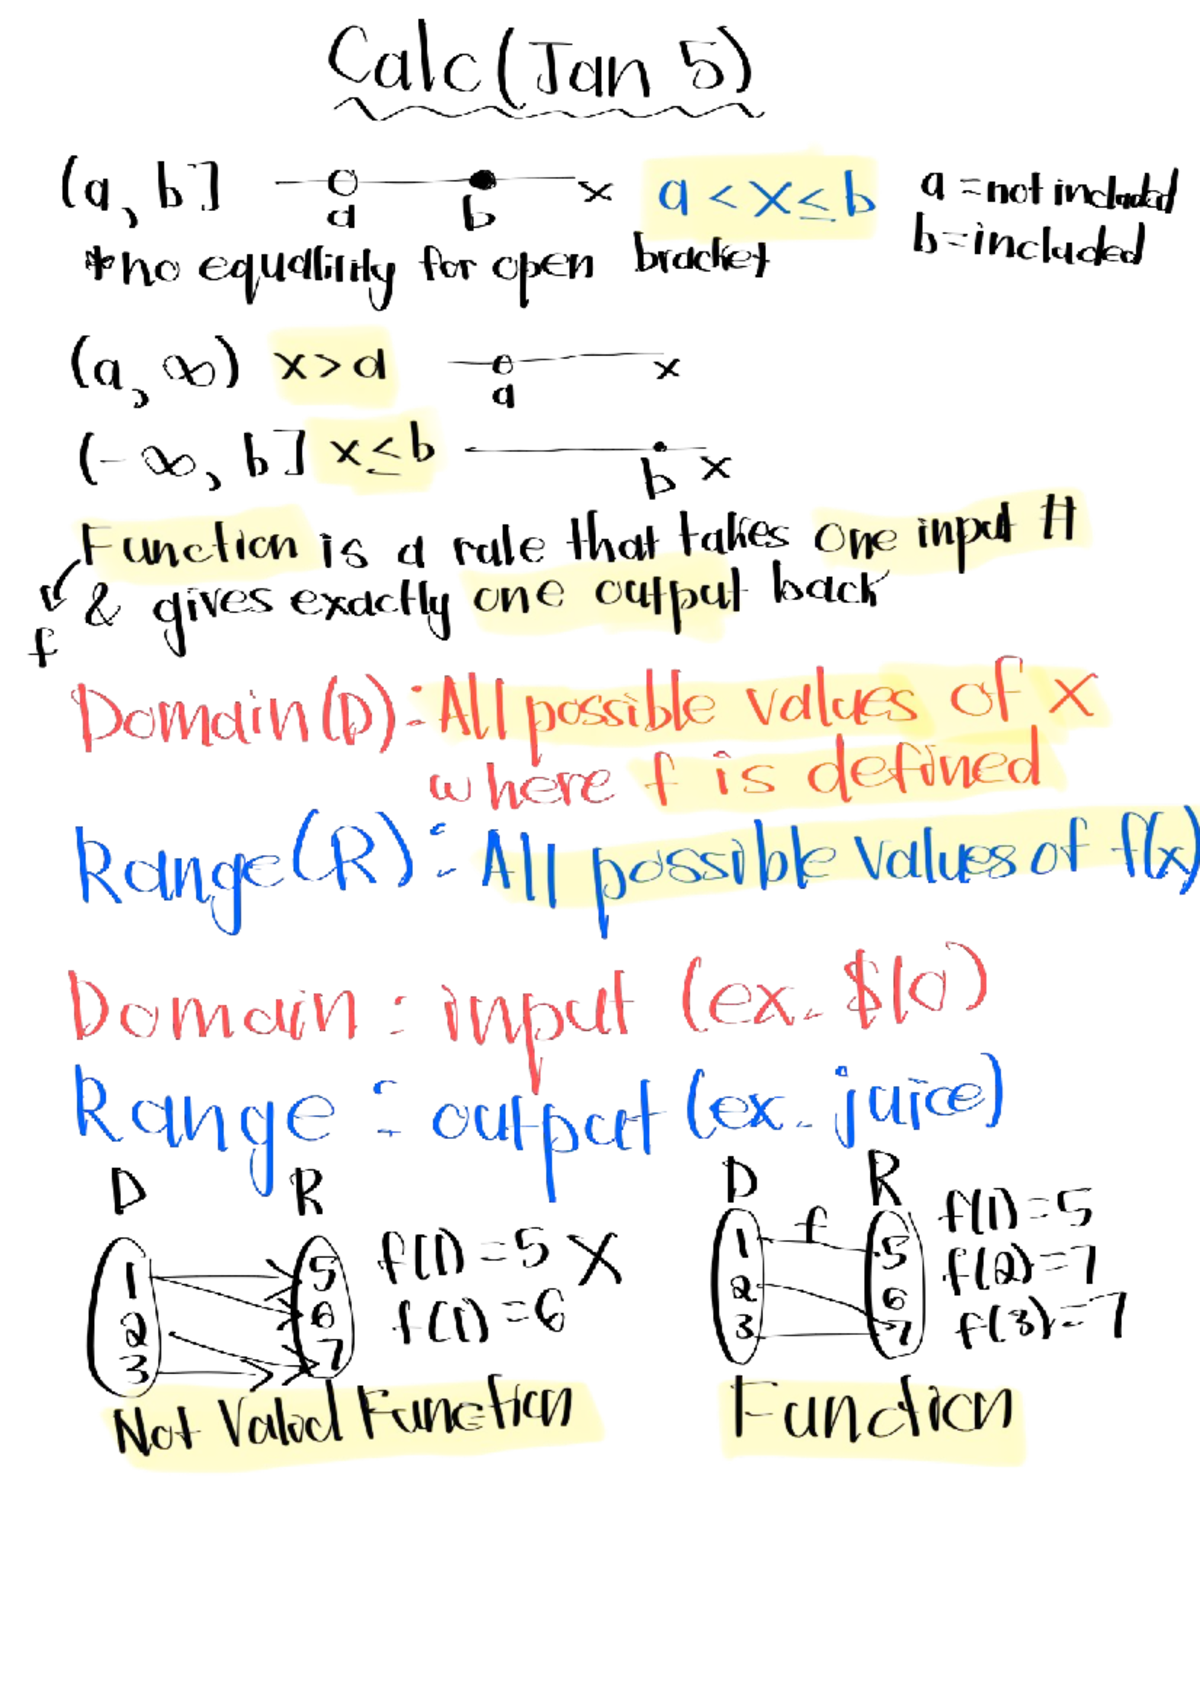 Calc (Jan 5)
(a, b] a b x a < x ≤ b a = not included
b = included
*no equallility for open bracket
(a, ∞) x > a a x
(-∞, b] x ≤ b b x
Function is a rule that takes one input #
& gives exactly one output back
f
Domain (D): All possible values of x
where f is defined
Range (R): All possible values of f(x)
Domain: input (ex. $10)
Range: output (ex. juice)
D R D R
1 2 3 5 6 7 f(1) = 5 X
f(1) = 6
1 2 3 f 5 6 7 f(1) = 5
f(2) = 7
f(3) = 7
Not Valod Function
Function